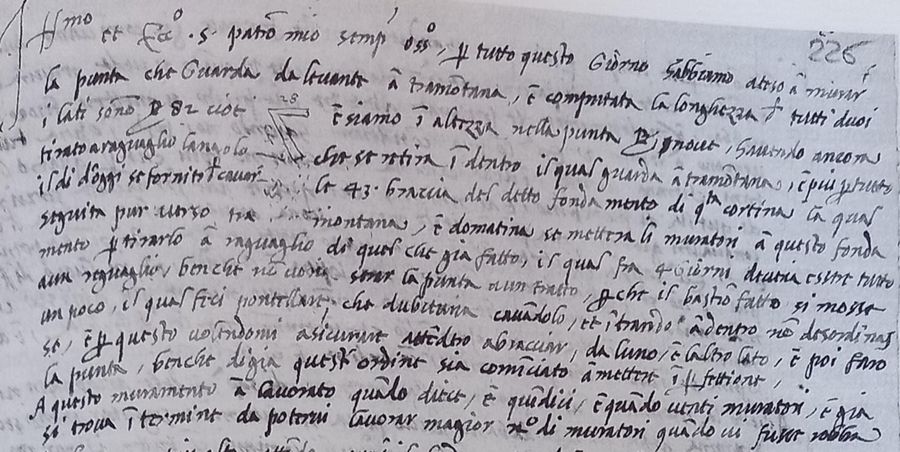 226
Hmo et Ecc.o S. patrō mio semp osso, p tutto questo Giorno habbiamo ateso ā murar
la punta che Guarda da leuante ā tramōtana, ē computata la longhezza tutti duoi
i lati sono 82 cioe 28 ē siamo ī altezza nella punta noue, hauendo ancora
tirato a raguaglio langolo che se retira ī dentro il qual guarda ā tramōtana, ē piu p tutto
il di doggi se fornito cauar le 43. braccia del detto fondamento di qta cortina la qual
seguita pur uerso tra montana, ē domatina se mettera li muratori ā questo fonda
mento p tirarlo ā raguaglio di quel che gia fatto, il qual fra 4 Giorni deueria essere tutto
a un reguaglio, benche nō uoria serar la punta a un tratto, p che il bastiō fatto si mosse
un poco, il qual feci pontellare, che dubitaua cauādolo, et ītrando ādentro nō desordinas
se, ē p questo uolendomi asicurare attēdero abraccuar, da luno, ē laltro lato, ē poi faro
la punta, benche digia quest ordine sia comīciato āmettere ī pfettione,
A questo muramento ā lauorato quādo diece, ē quīdici, ē quādo uenti muratori, ē gia
si troua ī termine da poterui lauorar magior no di muratori quādo ui fusse robba